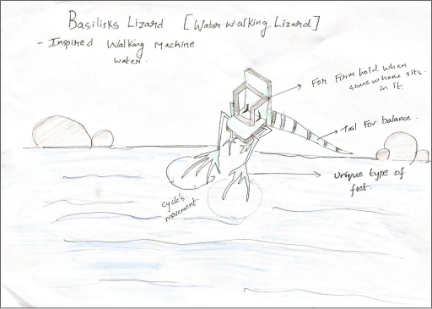 Basilisks Lizard [Water Walking Lizard]
- Inspired Walking Machine
water.
For Firm hold when
some whone sits
in it.
Tail For balance.
Unique type of
feet.
cycle's
movement